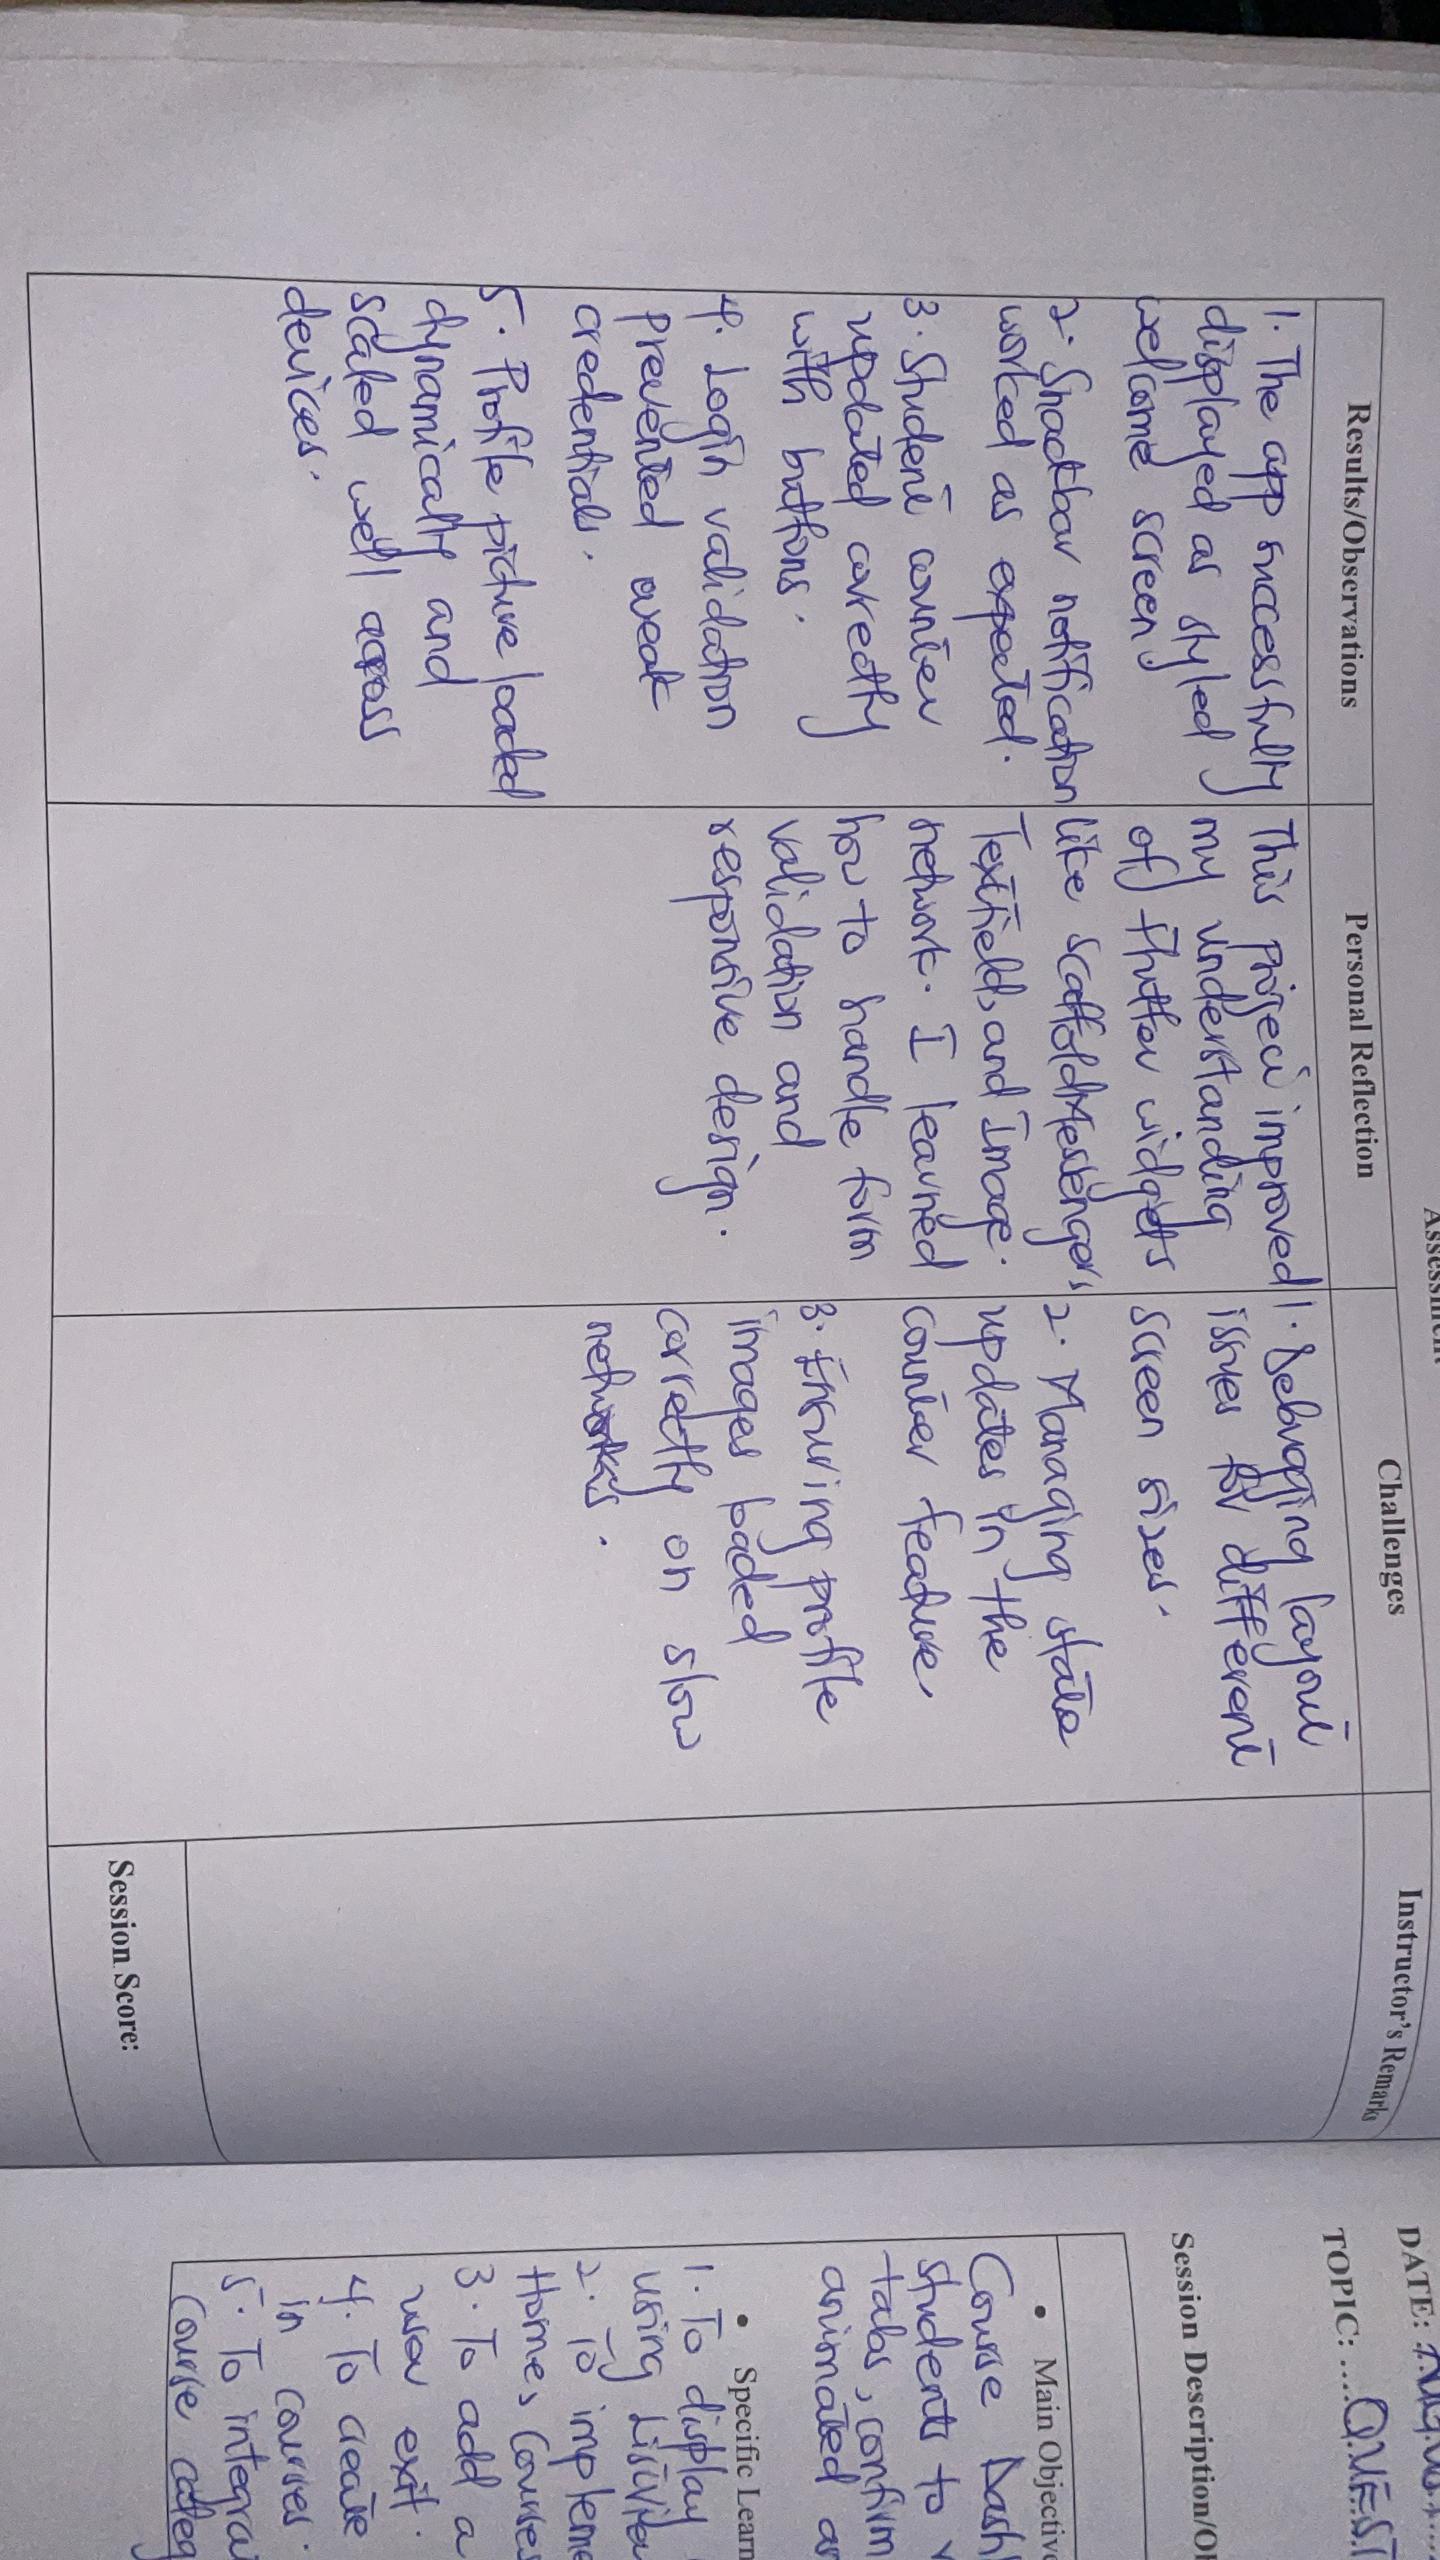 Assessment
Results/Observations
1. The app successfully
displayed as styled
welcome screen.
2. Snackbar notification
worked as expected.
3. Student counter
updated correctly
with buttons.
4. Login validation
prevented weak
credentials.
5. Profile picture loaded
dynamically and
scaled well across
devices.
Personal Reflection
This project improved
my understanding
of flutter widgets
like ScaffoldMessengers,
TextFields, and Image.
network. I learned
how to handle form
validation and
responsive design.
Challenges
1. Debugging layout
issues for different
screen sizes.
2. Managing state
updates in the
counter feature
3. Ensuring profile
images loaded
correctly on slow
networks.
Instructor's Remarks
Session Score:
DATE:
TOPIC: ....QUEST
Session Description/Ob
• Main Objective
Course Dash
students to
tabs, confirm
animated
• Specific Learn
1. To display
using ListView
2. To impleme
Homes, Courses
3. To add a
user exit.
4. To create
in courses.
5. To integra
Course categ